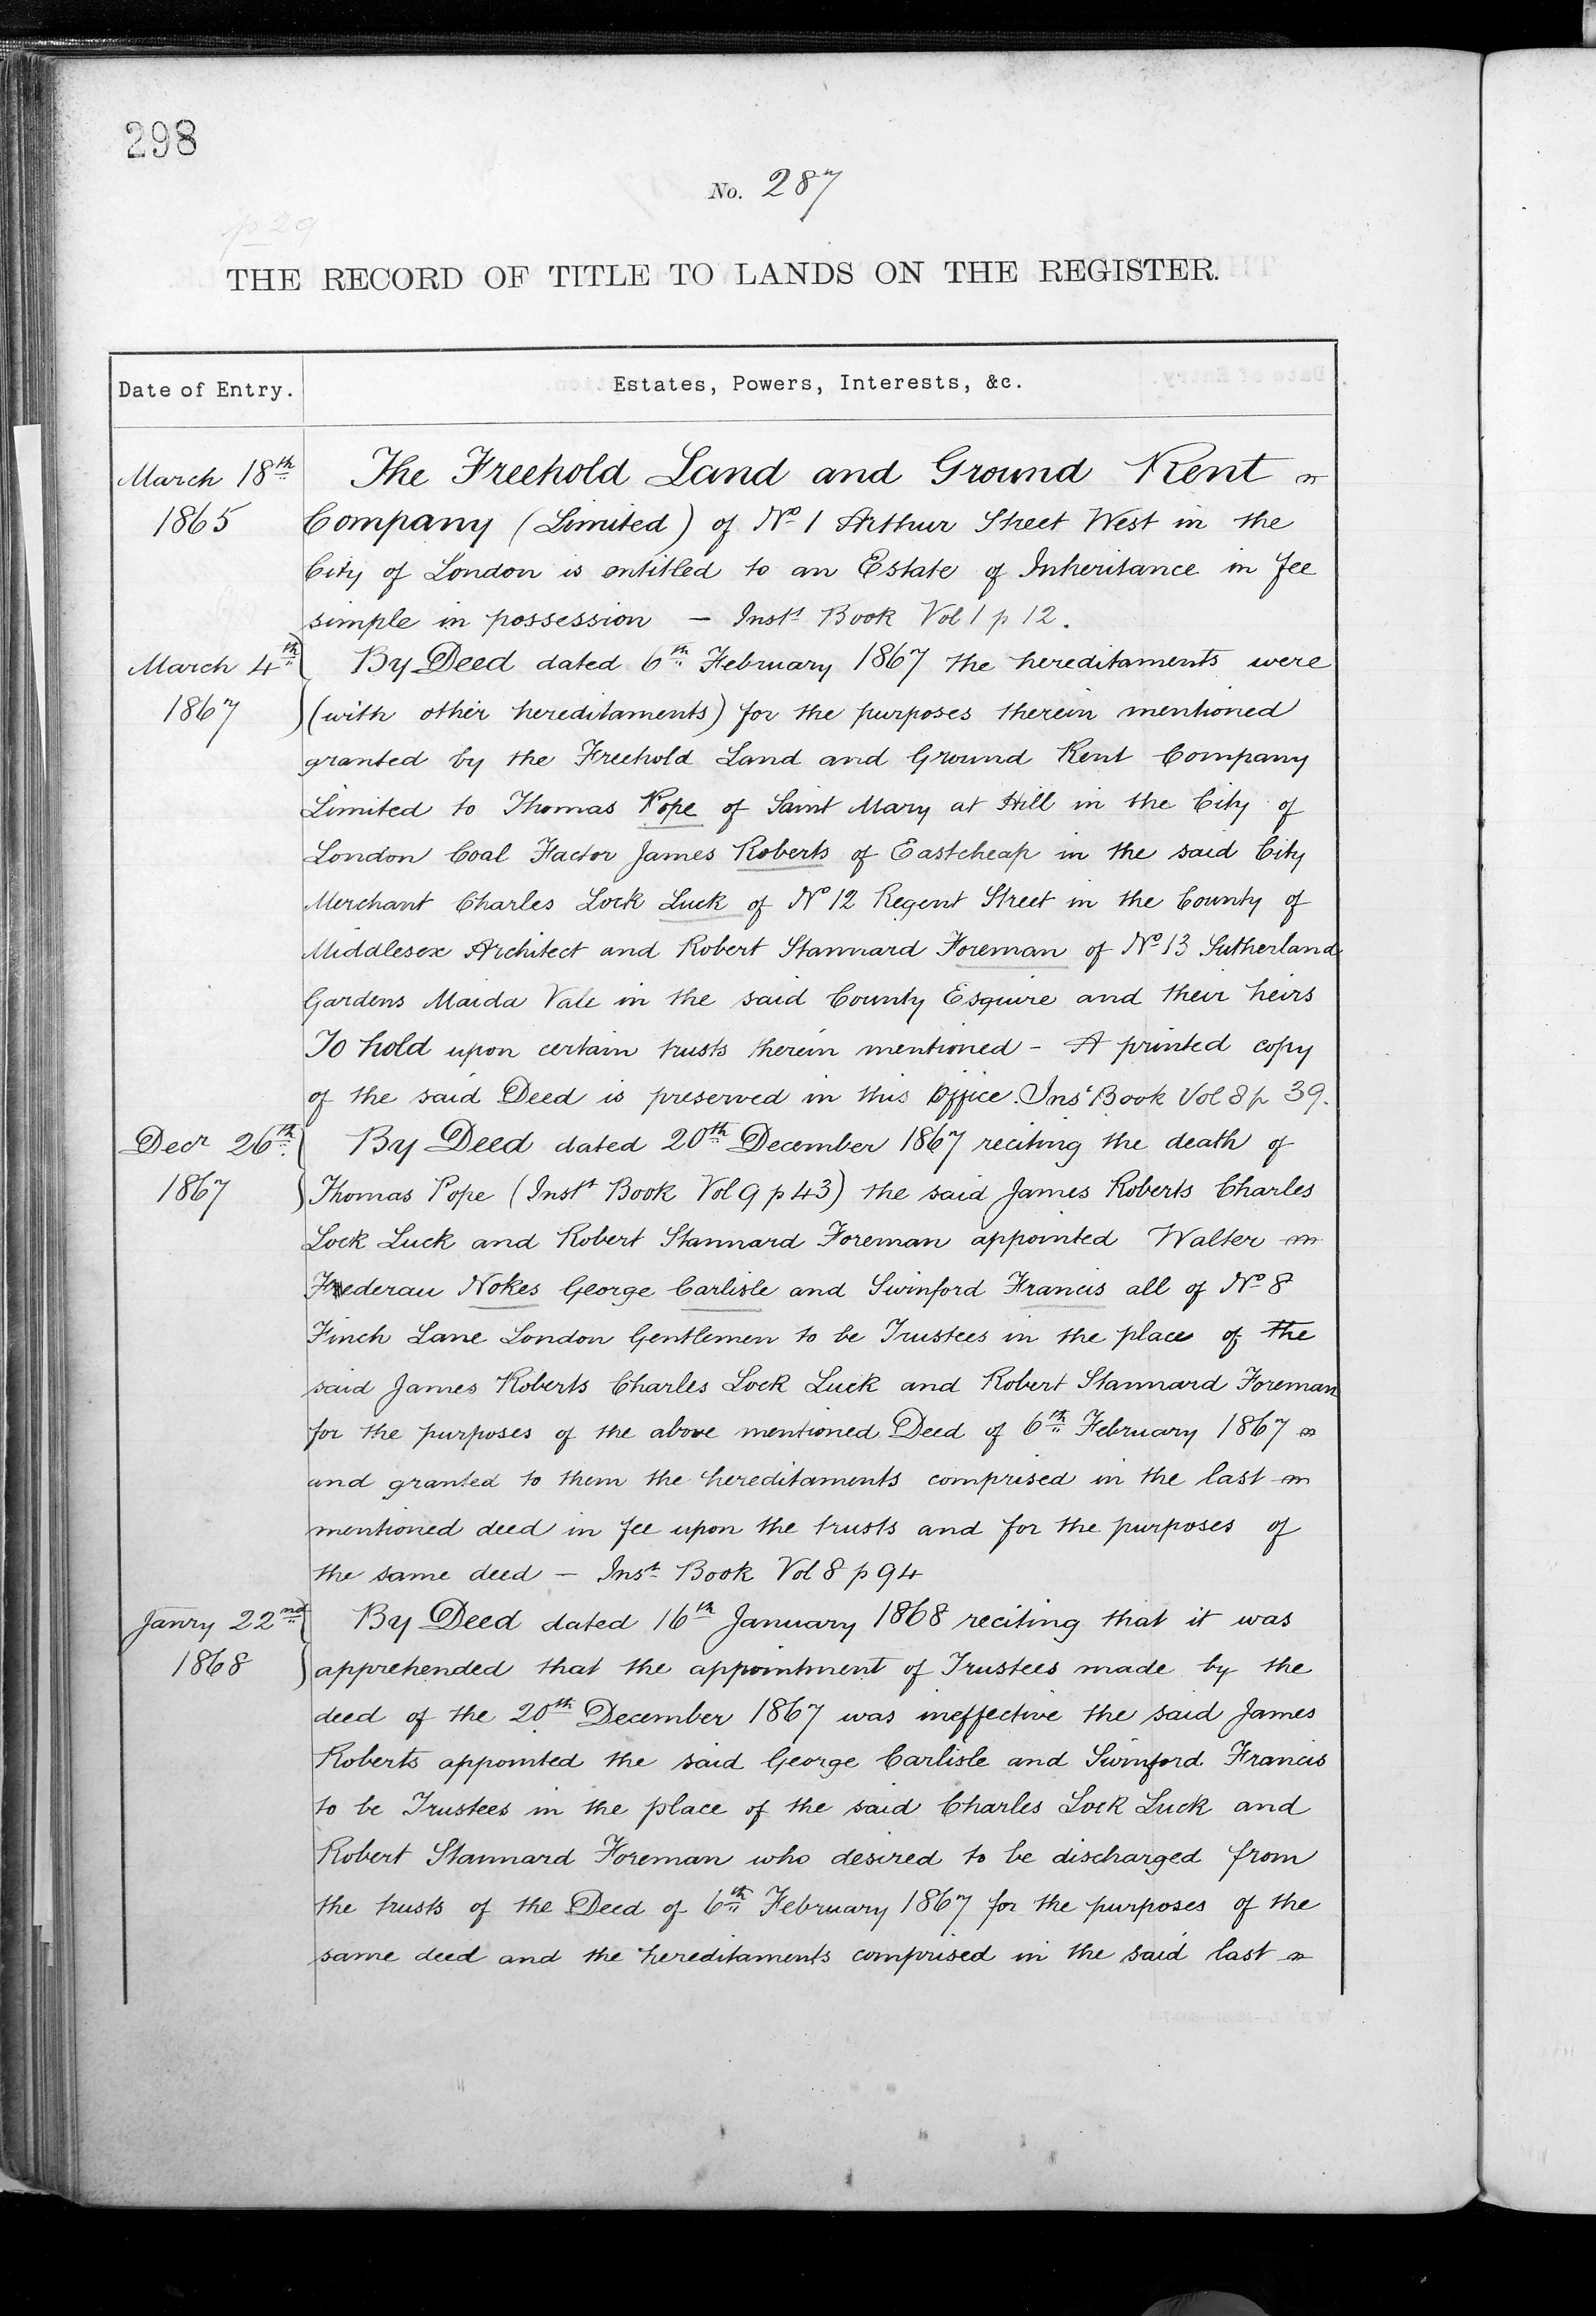 298
No. 287
p 29
THE RECORD OF TITLE TO LANDS ON THE REGISTER.
Date of Entry. Estates, Powers, Interests, &c.
March 18th The Freehold Land and Ground Rent
1865 Company (Limited) of No 1 Arthur Street West in the
City of London is entitled to an Estate of Inheritance in fee
simple in possession — Inst Book Vol 1 p 12.
March 4th By Deed dated 6th February 1867 the hereditaments were
1867 (with other hereditaments) for the purposes therein mentioned
granted by the Freehold Land and Ground Rent Company
Limited to Thomas Pope of Saint Mary at Hill in the City of
London Coal Factor James Roberts of Eastcheap in the said City
Merchant Charles Lock Luck of No 12 Regent Street in the County of
Middlesex Architect and Robert Stannard Foreman of No 13 Sutherland
Gardens Maida Vale in the said County Esquire and their heirs
To hold upon certain trusts therein mentioned – A printed copy
of the said Deed is preserved in this Office. Inst Book Vol 8 p 39.
Decr 26th By Deed dated 20th December 1867 reciting the death of
1867 Thomas Pope (Inst Book Vol 9 p 43) the said James Roberts Charles
Lock Luck and Robert Stannard Foreman appointed Walter
Frederau Nokes George Carlisle and Swinford Francis all of No 8
Finch Lane London Gentlemen to be Trustees in the place of the
said James Roberts Charles Lock Luck and Robert Stannard Foreman
for the purposes of the above mentioned Deed of 6th February 1867
and granted to them the hereditaments comprised in the last
mentioned deed in fee upon the trusts and for the purposes of
the same deed — Inst Book Vol 8 p 94
Janry 22nd By Deed dated 16th January 1868 reciting that it was
1868 apprehended that the appointment of Trustees made by the
deed of the 20th December 1867 was ineffective the said James
Roberts appointed the said George Carlisle and Swinford Francis
to be Trustees in the place of the said Charles Lock Luck and
Robert Stannard Foreman who desired to be discharged from
the trusts of the Deed of 6th February 1867 for the purposes of the
same deed and the hereditaments comprised in the said last